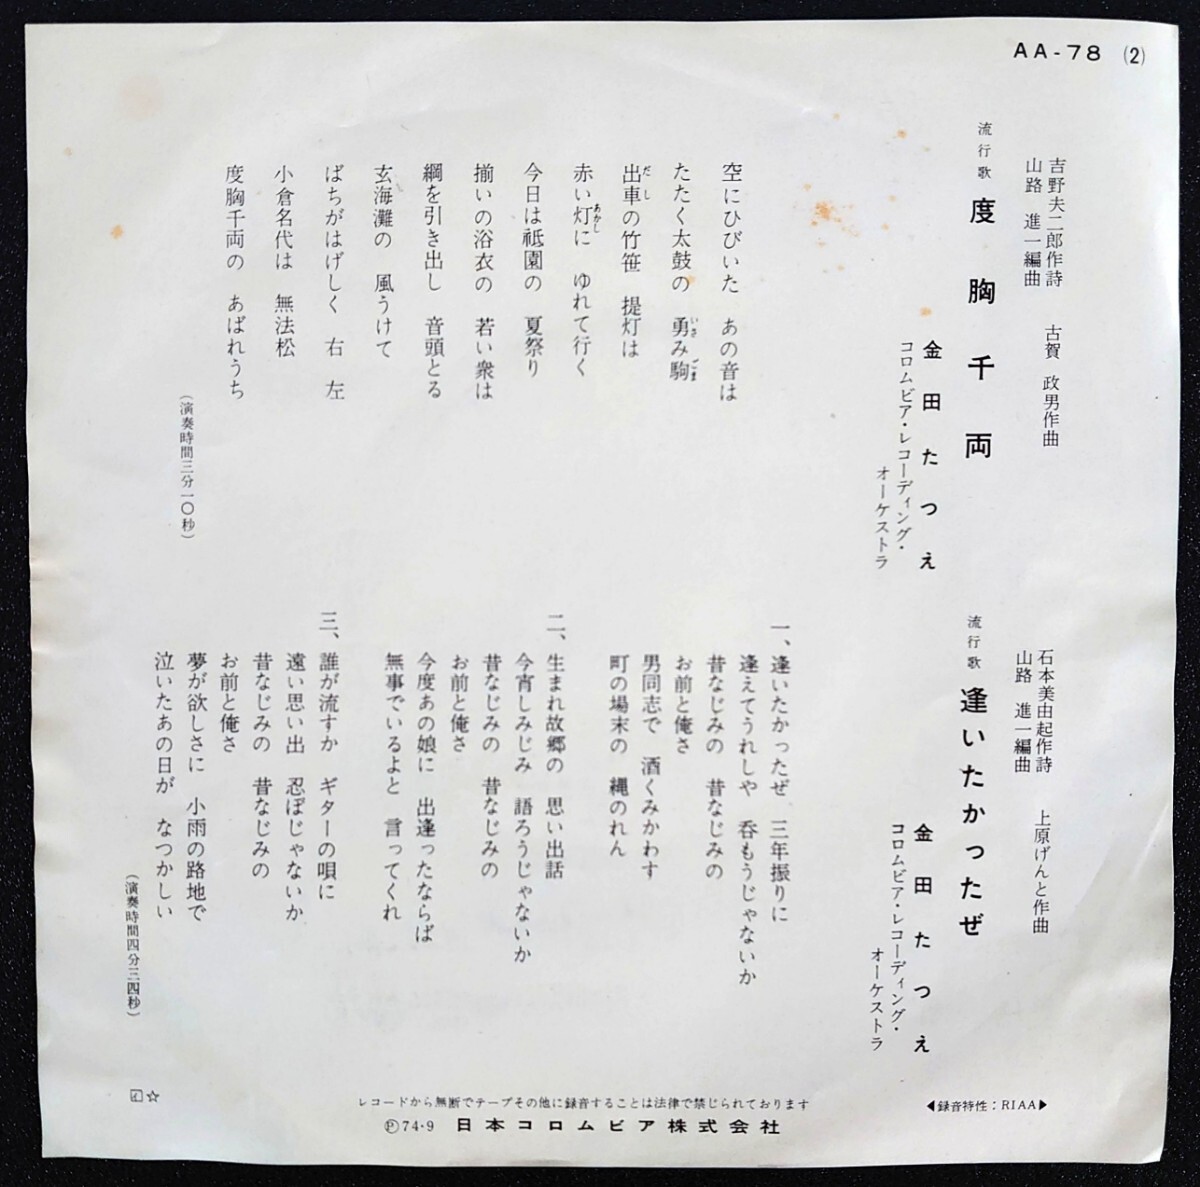 AA-78 (2)
吉野夫二郎作詩 古賀 政男作曲
山路 進一編曲
流行歌 度胸千両
金田たつえ
コロムビア・レコーディング・
オーケストラ
空にひびいた あの音は
たたく太鼓の 勇み駒
いさ ごま
出車の竹笹 提灯は
だし
赤い灯に ゆれて行く
あかし
今日は祗園の 夏祭り
揃いの浴衣の 若い衆は
綱を引き出し 音頭とる
玄海灘の 風うけて
ばちがはげしく 右 左
小倉名代は 無法松
度胸千両の あばれうち
(演奏時間三分一〇秒)
石本美由起作詩 上原げんと作曲
山路 進一編曲
流行歌 逢いたかったぜ
金田たつえ
コロムビア・レコーディング・
オーケストラ
一、逢いたかったぜ 三年振りに
逢えてうれしや 呑もうじゃないか
昔なじみの 昔なじみの
お前と俺さ
男同志で 酒くみかわす
町の場末の 縄のれん
二、生まれ故郷の 思い出話
今宵しみじみ 語ろうじゃないか
昔なじみの 昔なじみの
お前と俺さ
今度あの娘に 出逢ったならば
無事でいるよと 言ってくれ
三、誰が流すか ギターの唄に
遠い思い出 忍ぼじゃないか
昔なじみの 昔なじみの
お前と俺さ
夢が欲しさに 小雨の路地で
泣いたあの日が なつかしい
(演奏時間四分三四秒)
☆
レコードから無断でテープその他に録音することは法律で禁じられております
Ⓟ74・9 日本コロムビア株式会社
◀録音特性：RIAA▶